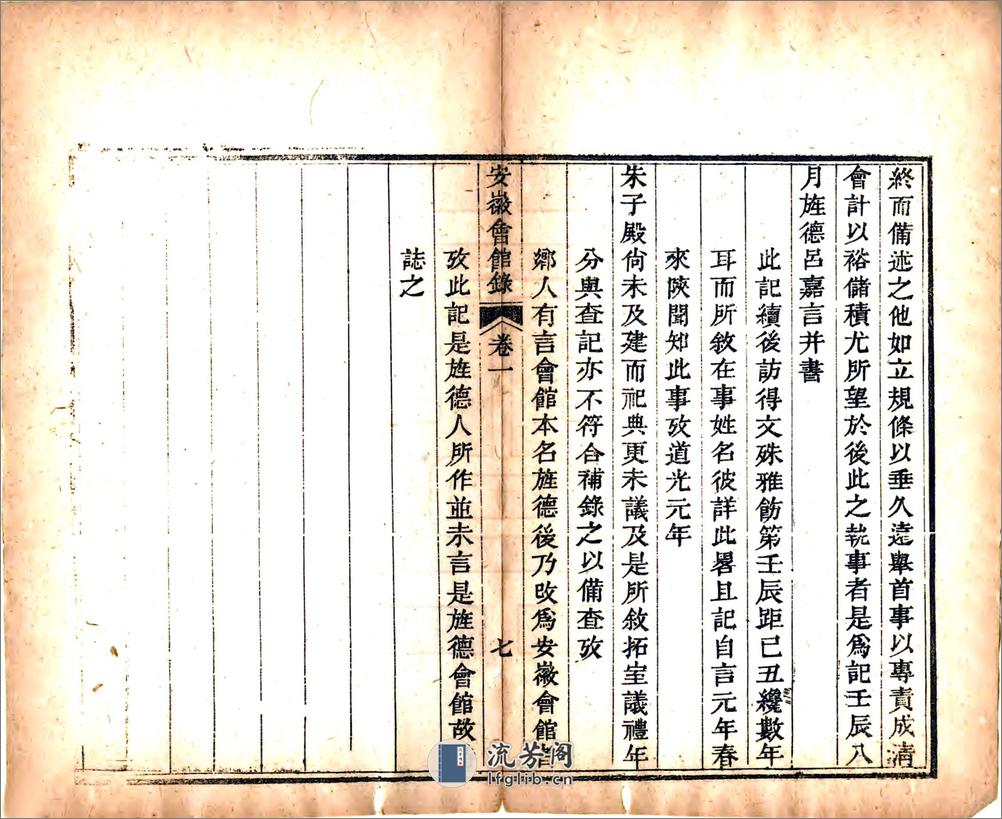 終而備述之他如立規條以垂久遠舉首事以專責成清
會計以裕儲積尤所望於後此之執事者是為記壬辰八
月旌德呂嘉言并書
此記續後訪得文殊雅飭第壬辰距己丑纔數年
耳而所敘在事姓名彼詳此畧且記自言元年春
來陝聞知此事攷道光元年
朱子殿尙未及建而祀典更未議及是所敘拓室議禮年
分與查記亦不符合補錄之以備查攷
鄉人有言會館本名旌德後乃改為安徽會館
安徽會館錄 卷一 七
攷此記是旌德人所作並未言是旌德會館故
誌之
流芳阁
lfglib.cn